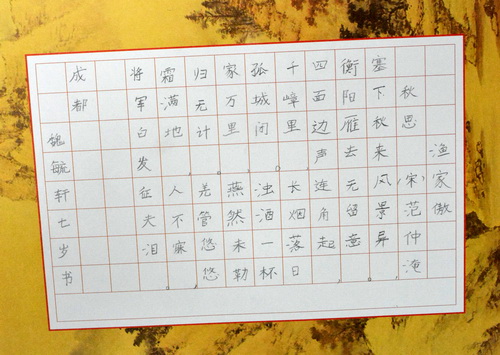 渔家傲
秋思（宋）范仲淹
塞下秋来风景异，
衡阳雁去无留意。
四面边声连角起，
千嶂里，长烟落日
孤城闭。浊酒一杯
家万里，燕然未勒
归无计，羌管悠悠
霜满地。人不寐，
将军白发征夫泪。
成都
魏毓轩七岁书